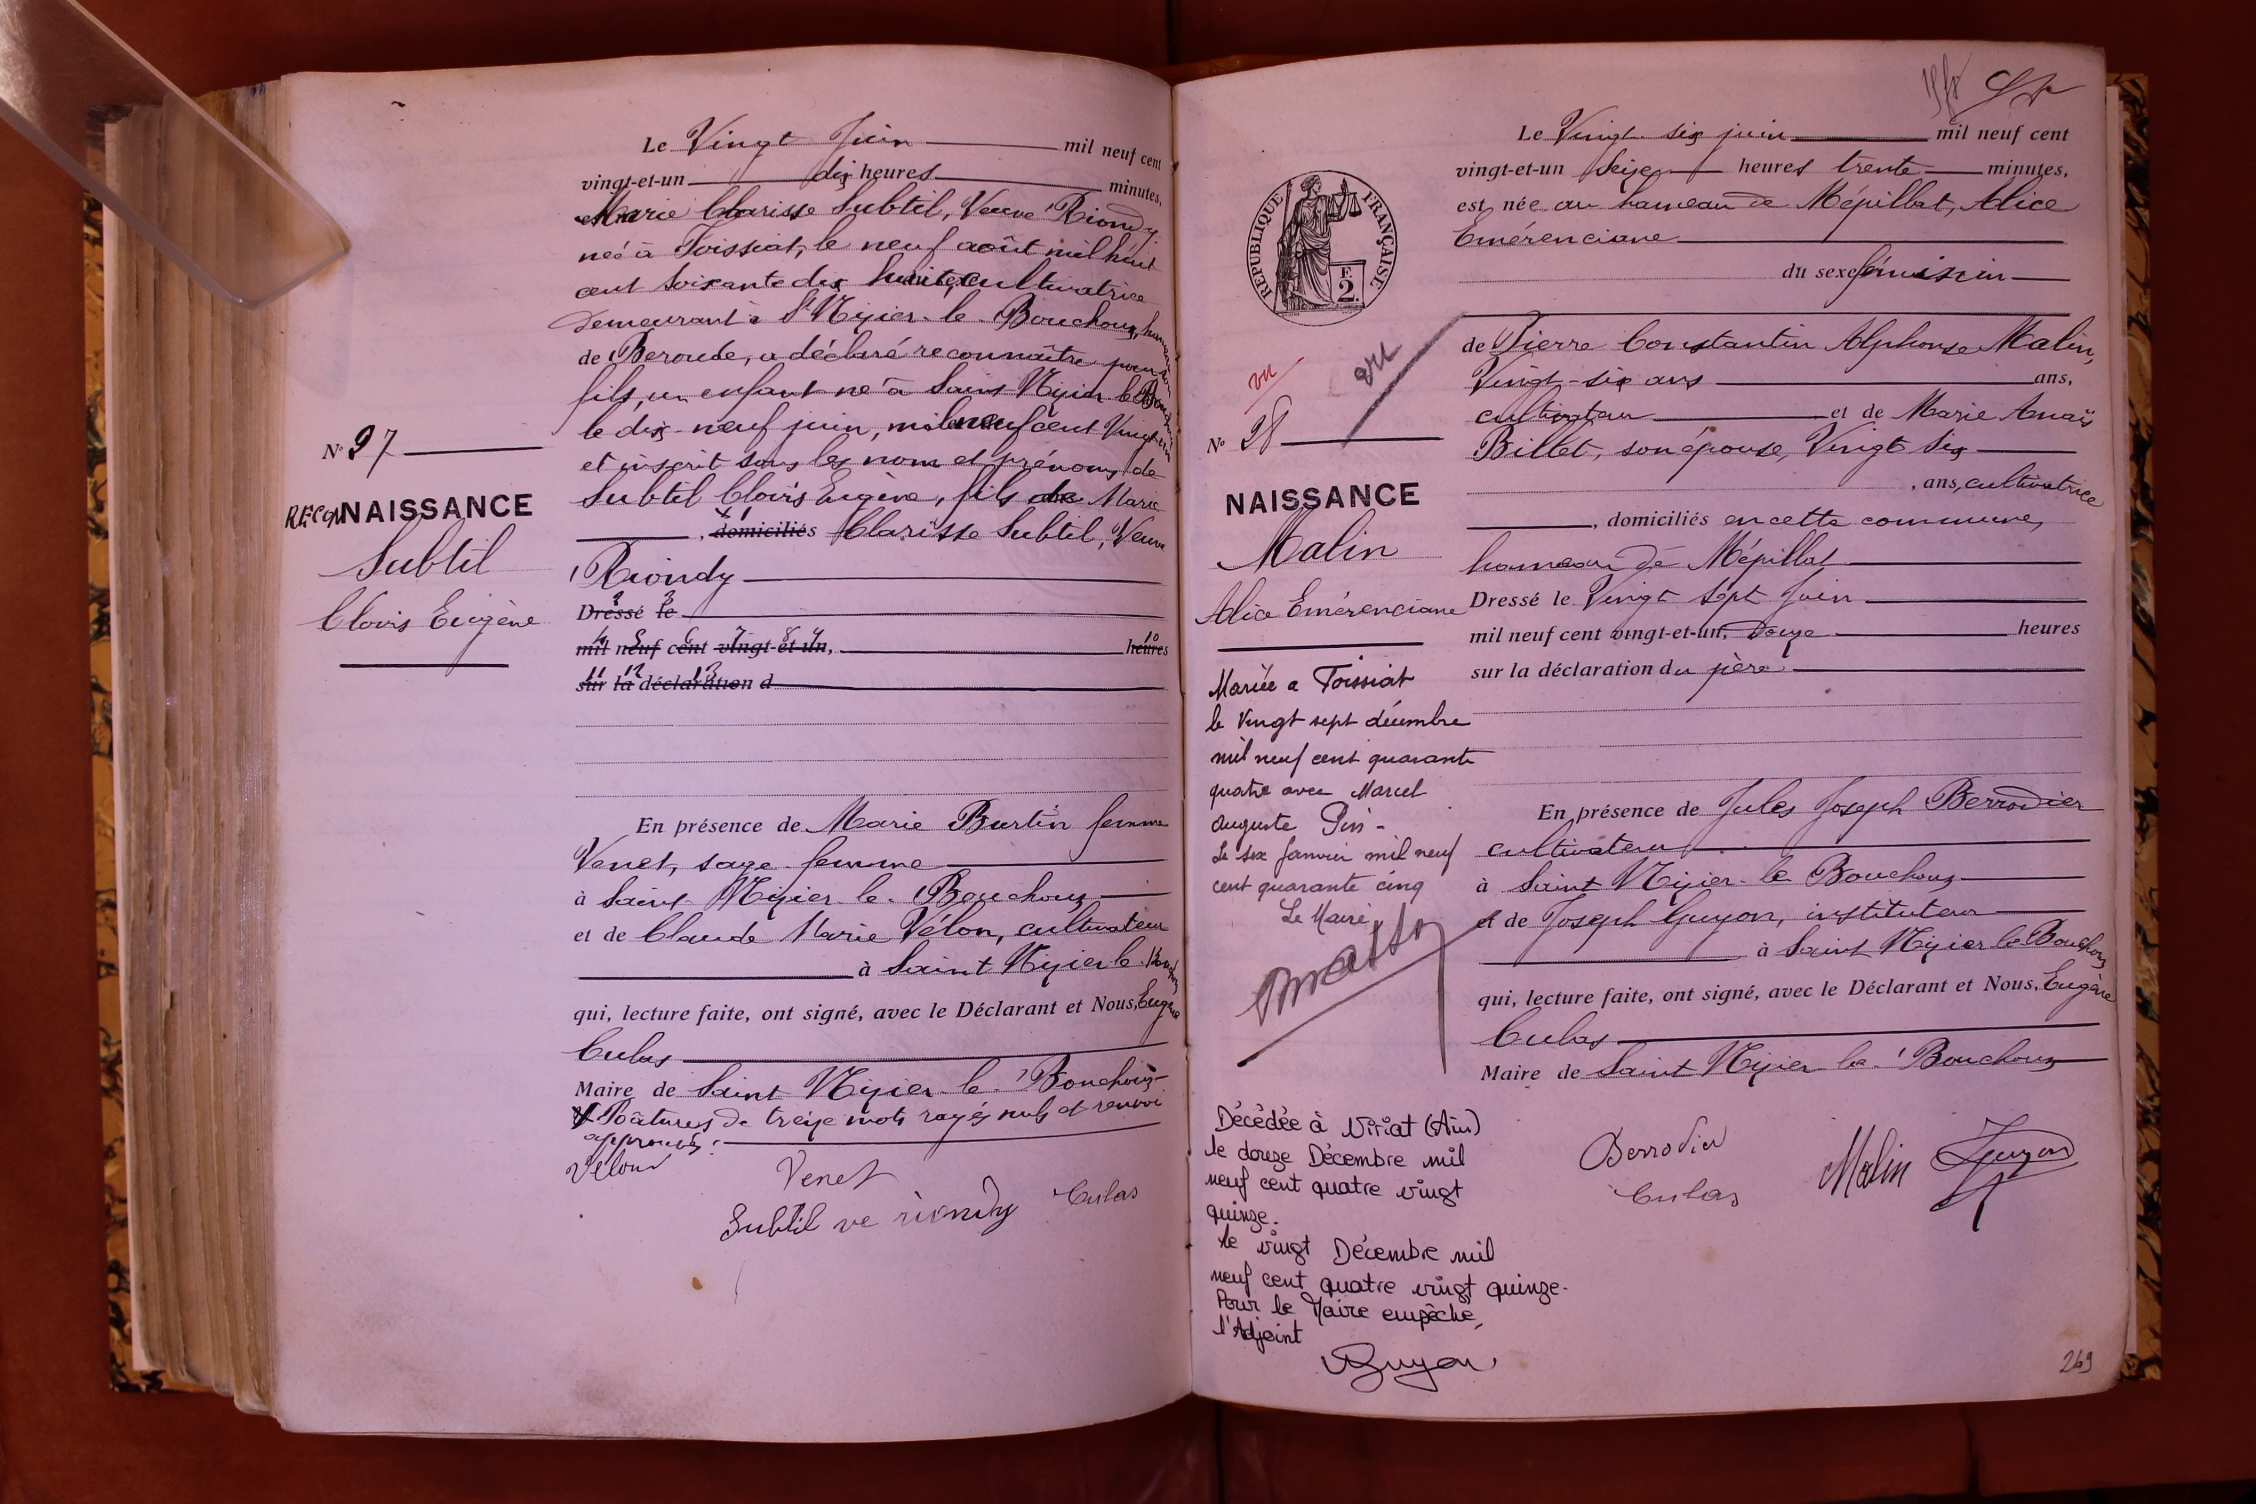 Le Vingt Juin mil neuf cent
vingt-et-un dix heures minutes,
Marie Clarisse Subtil, Veuve Riondy
née à Foissiat, le neuf août mil huit
cent soixante dix huit, cultivatrice
demeurant à St Nizier-le-Bouchoux, hameau
de Beroude, a déclaré reconnaître pour son
fils, un enfant né à Saint Nizier le Bouchoux
le dix-neuf juin, mil neuf cent Vingt un
et inscrit sous les nom et prénoms de
Subtil Clovis Eugène, fils de Marie
, domiciliés Clarisse Subtil, Veuve
Riondy
Dressé le
mil neuf cent vingt-et-un, heures
sur la déclaration d
En présence de Marie Burtin femme
Venet, sage-femme
à Saint Nizier-le-Bouchoux
et de Claude Marie Vélon, cultivateur
à Saint Nizier le Bouchoux
qui, lecture faite, ont signé, avec le Déclarant et Nous, Eugène
Culas
Maire de Saint Nizier-le-Bouchoux
de treize mots rayés nuls et renvoi
approuvés.
Velon
Venet
Subtil ve riondy Culas
N° 27
RECONNAISSANCE
Subtil
Clovis Eugène
Le Vingt-six juin mil neuf cent
vingt-et-un seize heures trente minutes,
est née au hameau de Mépillat, Alice
Emérenciane
du sexe féminin
de Pierre Constantin Alphonse Malin,
Vingt-six ans ans,
cultivateur et de Marie Anaïs
Billet, son épouse, Vingt six
, ans, cultivatrice
, domiciliés en cette commune,
hameau de Mépillat
Dressé le Vingt sept Juin
mil neuf cent vingt-et-un, douze heures
sur la déclaration du père
En présence de Jules Joseph Berrodier
cultivateur
à Saint Nizier-le-Bouchoux
et de Joseph Guyon, instituteur
à Saint Nizier le Bouchoux
qui, lecture faite, ont signé, avec le Déclarant et Nous, Eugène
Culas
Maire de Saint Nizier le Bouchoux
Berrodier
Culas
Malin Guyon
RÉPUBLIQUE FRANÇAISE
F.
2.
vu
vu
N° 28
NAISSANCE
Malin
Alice Emérenciane
Mariée a Foissiat
le Vingt sept décembre
mil neuf cent quarante
quatre avec Marcel
Auguste
Le six Janvier mil neuf
cent quarante cinq
Le Maire
Décédée à Viriat (Ain)
le douze Décembre mil
neuf cent quatre vingt
quinze.
le vingt Décembre mil
neuf cent quatre vingt quinze.
Pour le Maire empêché,
l'Adjoint
Guyon
249